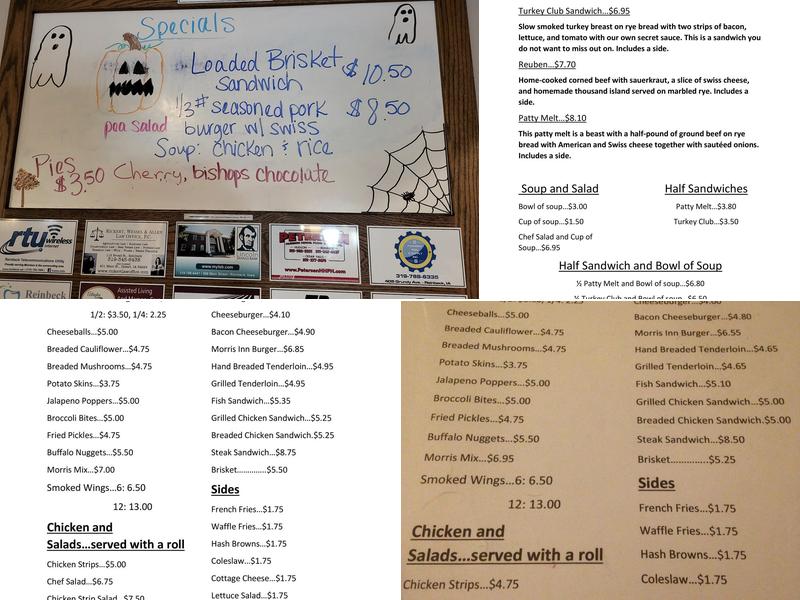 Specials
Loaded Brisket $10.50
sandwich
1/3# seasoned pork $8.50
burger w/ swiss
pea salad
Soup: chicken & rice
Pies
$3.50 Cherry, bishops chocolate
rtu wireless
internet
Reinbeck Telecommunications Utility
RICKERT, WESSEL & ALLEN
LAW OFFICE, P.C.
Lincoln
www.mylsb.com
PETERSEN
www.PetersenHHPH.com
319-788-6335
405 Grundy Ave. - Reinbeck, IA
Reinbeck
Assisted Living
Turkey Club Sandwich...$6.95
Slow smoked turkey breast on rye bread with two strips of bacon,
lettuce, and tomato with our own secret sauce. This is a sandwich you
do not want to miss out on. Includes a side.
Reuben...$7.70
Home-cooked corned beef with sauerkraut, a slice of swiss cheese,
and homemade thousand island served on marbled rye. Includes a
side.
Patty Melt...$8.10
This patty melt is a beast with a half-pound of ground beef on rye
bread with American and Swiss cheese together with sautéed onions.
Includes a side.
Soup and Salad
Bowl of soup...$3.00
Cup of soup...$1.50
Chef Salad and Cup of
Soup...$6.95
Half Sandwiches
Patty Melt...$3.80
Turkey Club...$3.50
Half Sandwich and Bowl of Soup
½ Patty Melt and Bowl of soup...$6.80
½ Turkey Club and Bowl of soup...$6.50
1/2: $3.50, 1/4: 2.25
Cheeseballs...$5.00
Breaded Cauliflower...$4.75
Breaded Mushrooms...$4.75
Potato Skins...$3.75
Jalapeno Poppers...$5.00
Broccoli Bites...$5.00
Fried Pickles...$4.75
Buffalo Nuggets...$5.50
Morris Mix...$7.00
Smoked Wings...6: 6.50
12: 13.00
Chicken and
Salads...served with a roll
Chicken Strips...$5.00
Chef Salad...$6.75
Chicken Strip Salad...$7.50
Cheeseburger...$4.10
Bacon Cheeseburger...$4.90
Morris Inn Burger...$6.85
Hand Breaded Tenderloin...$4.95
Grilled Tenderloin...$4.95
Fish Sandwich...$5.35
Grilled Chicken Sandwich...$5.25
Breaded Chicken Sandwich.$5.25
Steak Sandwich...$8.75
Brisket.............$5.50
Sides
French Fries...$1.75
Waffle Fries...$1.75
Hash Browns...$1.75
Coleslaw...$1.75
Cottage Cheese...$1.75
Lettuce Salad...$1.75
Cheeseballs...$5.00
Breaded Cauliflower...$4.75
Breaded Mushrooms...$4.75
Potato Skins...$3.75
Jalapeno Poppers...$5.00
Broccoli Bites...$5.00
Fried Pickles...$4.75
Buffalo Nuggets...$5.50
Morris Mix...$6.95
Smoked Wings...6: 6.50
12: 13.00
Chicken and
Salads...served with a roll
Chicken Strips...$4.75
Bacon Cheeseburger...$4.80
Morris Inn Burger...$6.55
Hand Breaded Tenderloin...$4.65
Grilled Tenderloin...$4.65
Fish Sandwich...$5.10
Grilled Chicken Sandwich...$5.00
Breaded Chicken Sandwich.$5.00
Steak Sandwich...$8.50
Brisket.............$5.25
Sides
French Fries...$1.75
Waffle Fries...$1.75
Hash Browns...$1.75
Coleslaw...$1.75